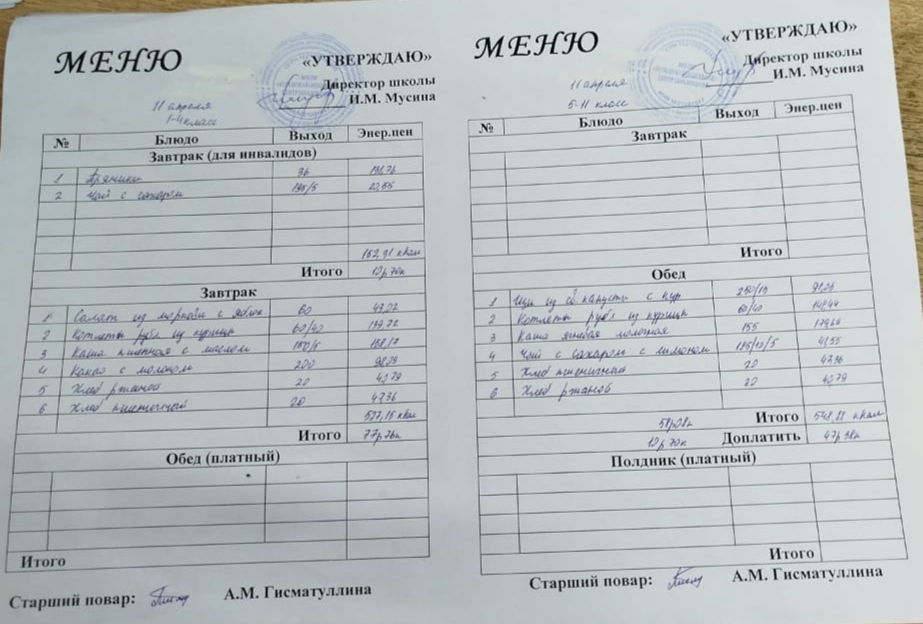 МЕНЮ
«УТВЕРЖДАЮ»
Директор школы
И.М. Мусина
11 апреля
1-4 класс
№ Блюдо Выход Энер.цен
Завтрак (для инвалидов)
1 Пряники 36
2 Чай с сахаром
162,91 ккал
Итого 12р70к
Завтрак
1 Салат из моркови с яблок 60
2 Котлета рубл из курицы 60/40 139,72
3 Каша пшенная с маслом 150/5
4 Какао с молоком 200
5 Хлеб ржаной 20 40,79
6 Хлеб пшеничный 20 47,36
Итого
Обед (платный)
Итого
Старший повар: А.М. Гисматуллина
МЕНЮ
«УТВЕРЖДАЮ»
Директор школы
И.М. Мусина
11 апреля
5-11 класс
№ Блюдо Выход Энер.цен
Завтрак
Итого
Обед
1 Щи из св. капусты с кур
2 Котлета рубл из курицы 60/40
3 Каша молочная 155
4 Чай с сахаром с лимоном
5 Хлеб пшеничный 20 47,36
6 Хлеб ржаной 20 40,79
Итого
12р70к Доплатить
Полдник (платный)
Итого
Старший повар: А.М. Гисматуллина